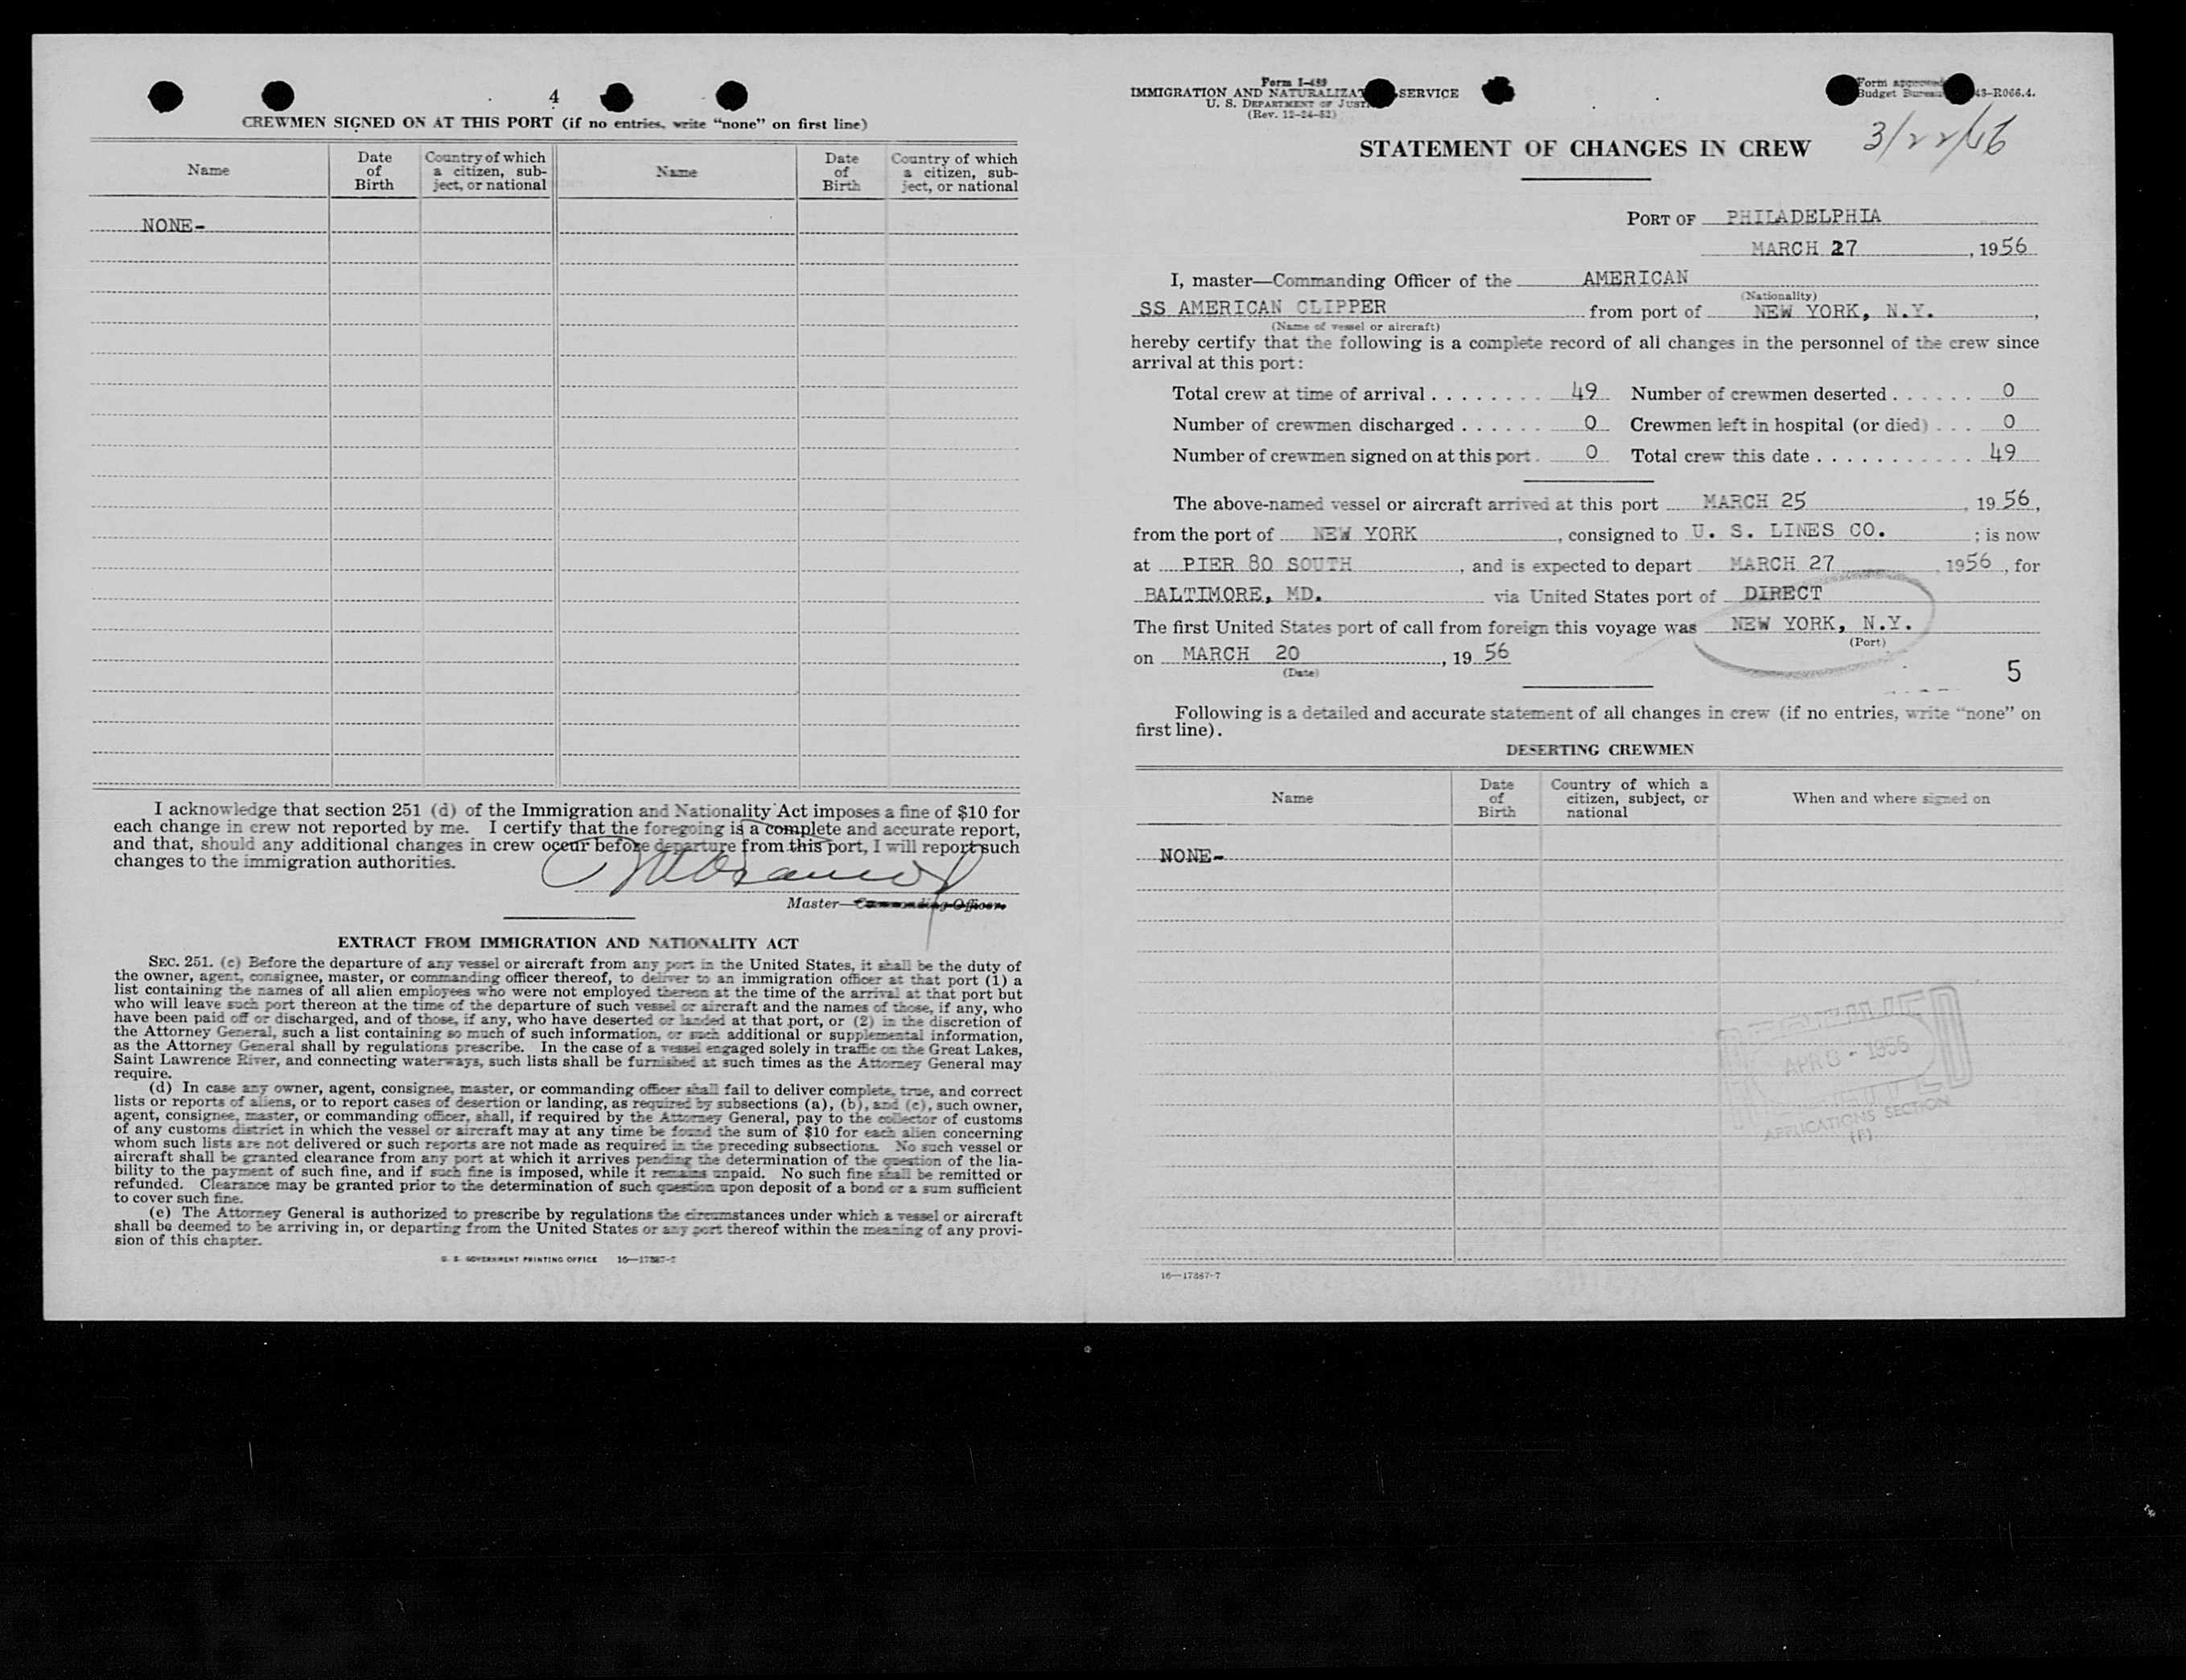 4
CREWMEN SIGNED ON AT THIS PORT (if no entries, write "none" on first line)
Name
Date of Birth
Country of which a citizen, subject, or national
Name
Date of Birth
Country of which a citizen, subject, or national
NONE-
I acknowledge that section 251 (d) of the Immigration and Nationality Act imposes a fine of $10 for
each change in crew not reported by me. I certify that the foregoing is a complete and accurate report,
and that, should any additional changes in crew occur before departure from this port, I will report such
changes to the immigration authorities.
Master—Commanding Officer.
EXTRACT FROM IMMIGRATION AND NATIONALITY ACT
SEC. 251. (c) Before the departure of any vessel or aircraft from any port in the United States, it shall be the duty of
the owner, agent, consignee, master, or commanding officer thereof, to deliver to an immigration officer at that port (1) a
list containing the names of all alien employees who were not employed thereon at the time of the arrival at that port but
who will leave such port thereon at the time of the departure of such vessel or aircraft and the names of those, if any, who
have been paid off or discharged, and of those, if any, who have deserted or landed at that port, or (2) in the discretion of
the Attorney General, such a list containing so much of such information, or such additional or supplemental information,
as the Attorney General shall by regulations prescribe. In the case of a vessel engaged solely in traffic on the Great Lakes,
Saint Lawrence River, and connecting waterways, such lists shall be furnished at such times as the Attorney General may
require.
(d) In case any owner, agent, consignee, master, or commanding officer shall fail to deliver complete, true, and correct
lists or reports of aliens, or to report cases of desertion or landing, as required by subsections (a), (b), and (c), such owner,
agent, consignee, master, or commanding officer, shall, if required by the Attorney General, pay to the collector of customs
of any customs district in which the vessel or aircraft may at any time be found the sum of $10 for each alien concerning
whom such lists are not delivered or such reports are not made as required in the preceding subsections. No such vessel or
aircraft shall be granted clearance from any port at which it arrives pending the determination of the question of the lia-
bility to the payment of such fine, and if such fine is imposed, while it remains unpaid. No such fine shall be remitted or
refunded. Clearance may be granted prior to the determination of such question upon deposit of a bond or a sum sufficient
to cover such fine.
(e) The Attorney General is authorized to prescribe by regulations the circumstances under which a vessel or aircraft
shall be deemed to be arriving in, or departing from the United States or any port thereof within the meaning of any provi-
sion of this chapter.
U. S. GOVERNMENT PRINTING OFFICE 16—17387-7
Form I-489
IMMIGRATION AND NATURALIZAT SERVICE
U. S. DEPARTMENT OF JUST
(Rev. 12-24-52)
Form approved
Budget Bureau 43-R066.4.
STATEMENT OF CHANGES IN CREW
3/22/56
PORT OF PHILADELPHIA
MARCH 27, 1956
I, master—Commanding Officer of the AMERICAN
(Nationality)
SS AMERICAN CLIPPER from port of NEW YORK, N.Y.,
(Name of vessel or aircraft)
hereby certify that the following is a complete record of all changes in the personnel of the crew since
arrival at this port:
Total crew at time of arrival . . . . . . . . 49 Number of crewmen deserted . . . . . . 0
Number of crewmen discharged . . . . . . 0 Crewmen left in hospital (or died) . . . 0
Number of crewmen signed on at this port . 0 Total crew this date . . . . . . . . . . . . 49
The above-named vessel or aircraft arrived at this port MARCH 25, 1956,
from the port of NEW YORK, consigned to U. S. LINES CO. ; is now
at PIER 80 SOUTH, and is expected to depart MARCH 27, 1956, for
BALTIMORE, MD. via United States port of DIRECT
The first United States port of call from foreign this voyage was NEW YORK, N.Y.
(Port)
on MARCH 20, 1956
(Date)
5
Following is a detailed and accurate statement of all changes in crew (if no entries, write "none" on
first line).
DESERTING CREWMEN
Name
Date of Birth
Country of which a citizen, subject, or national
When and where signed on
NONE-
RECEIVED
APR - 1956
APPLICATIONS SECTION
(F)
16—17387-7